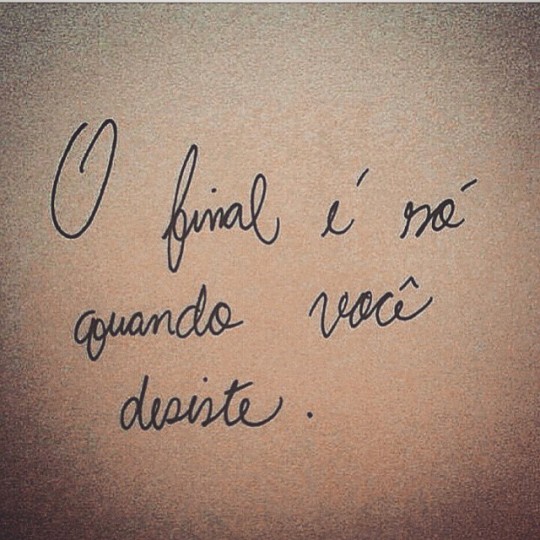 O final é só
quando você
desiste.